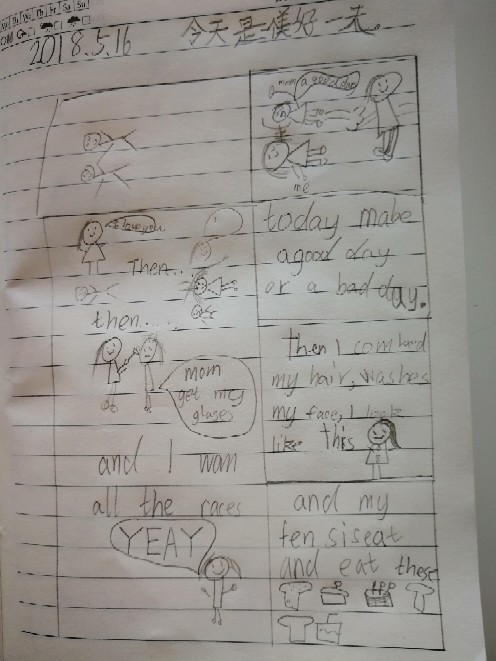 2018.5.16
今天是美好一天。
a good day
me
I love you
Then...
then.....
mom
get my
glases
and I wan
all the races
YEAY
today mabe
a good day
or a bad day.
then I comhed
my hair, washes
my face, I look
like this
and my
and eat these